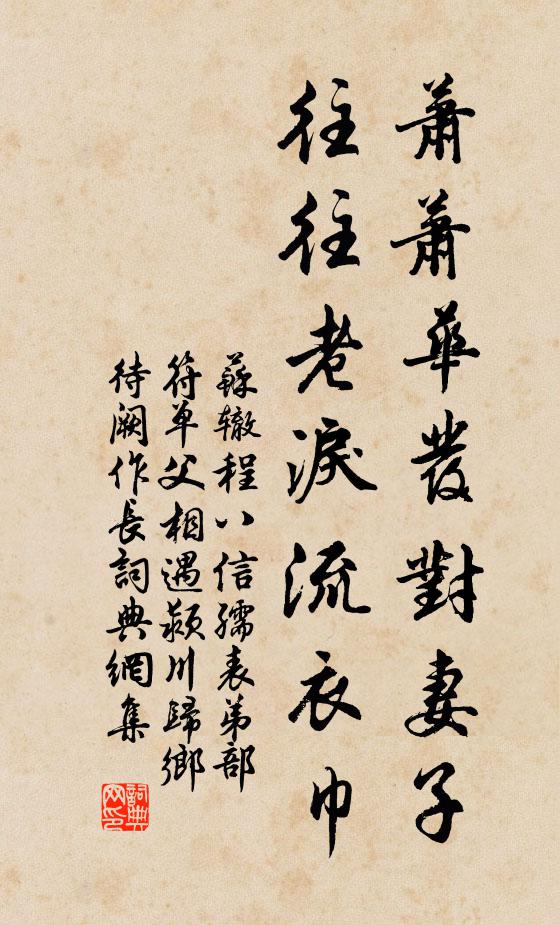 蕭蕭華發對妻子
往往老淚流衣巾
蘇辙程八信孺表弟部
符单父相遇颍川歸鄉
待阙作長詞典網集
詞典网印